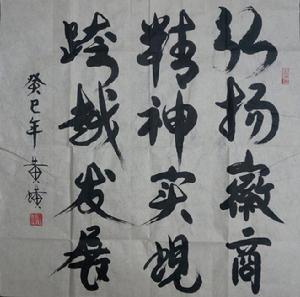 弘扬徽商
精神实现
跨越发展
癸巳年